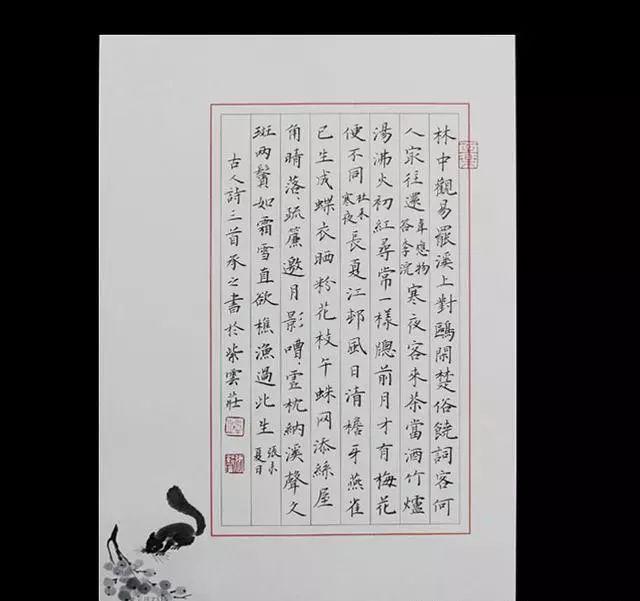 林中觀易罷溪上對鷗閒楚俗饒詞客何
人㝡往還韋應物答李浣寒夜客來茶當酒竹爐
湯沸火初紅尋常一樣牕前月才有梅花
便不同杜耒寒夜長夏江邨風日清檐牙燕雀
已生成蝶衣晒粉花枝午蛛网添絲屋
角晴落〻疏簾邀月影嘈〻虛枕納溪聲久
斑兩鬢如霜雪直欲樵漁過此生張耒夏日
古人詩三首承之書於紫雲莊